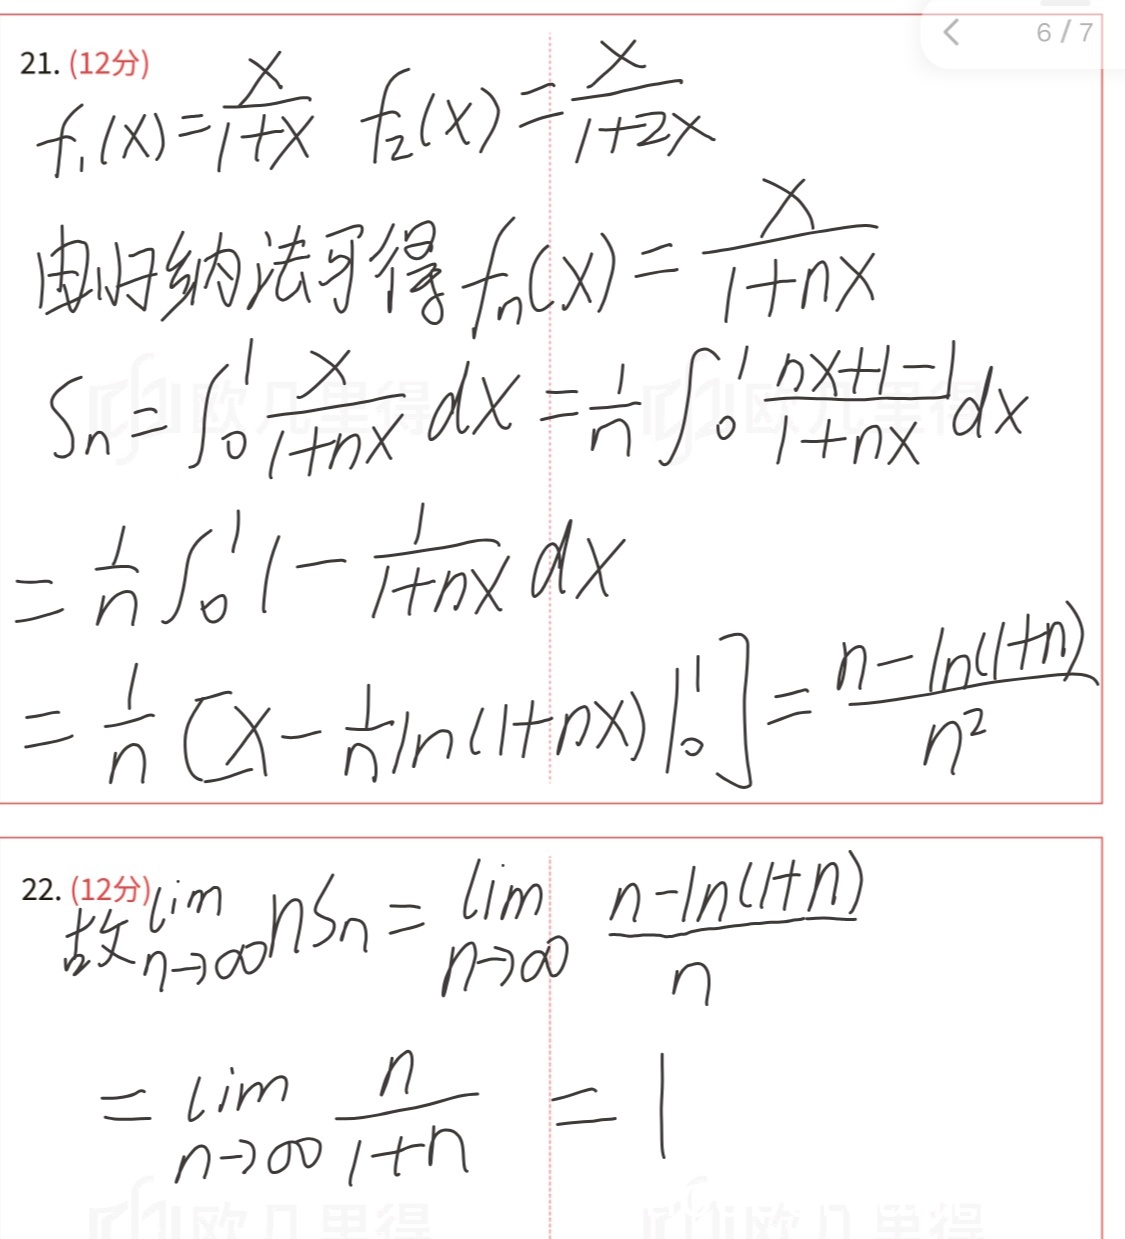 6 / 7
21. (12分)
f₁(x) = x/(1+x)  f₂(x) = x/(1+2x)
由归纳法可得 fₙ(x) = x/(1+nx)
Sₙ = ∫₀¹ x/(1+nx) dx = 1/n ∫₀¹ (nx+1-1)/(1+nx) dx
= 1/n ∫₀¹ 1 - 1/(1+nx) dx
= 1/n [x - 1/n ln(1+nx) |₀¹] = (n-ln(1+n))/n²
22. (12分)
故 lim n→∞ nSₙ = lim n→∞ (n-ln(1+n))/n
= lim n→∞ n/(1+n) = 1
欧几里得 欧几里得
欧几里得 欧几里得